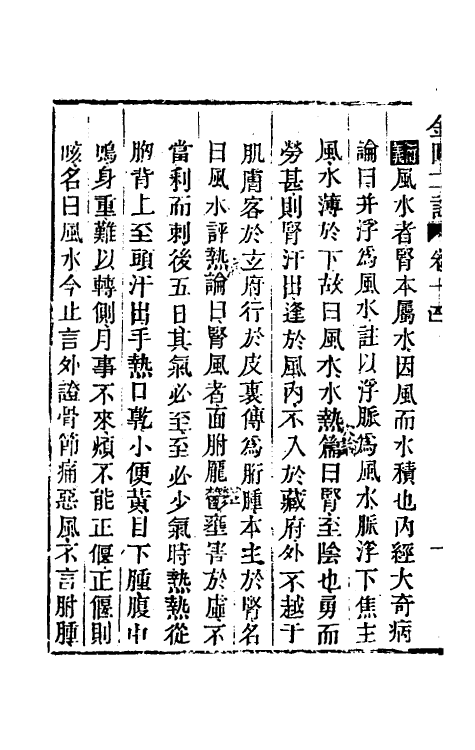 金匱二註 卷十四 一
衍義 風水者腎本屬水因風而水積也內經大奇病
論曰并浮為風水註以浮脈為風水脈浮下焦主
風水薄於下故曰風水水熱篇曰腎至陰也勇而
勞甚則腎汗出逢於風內不入於藏府外不越于
肌膚客於玄府行於皮裏傳為胕腫本主於腎名
曰風水評熱論曰腎風者面胕龎壅害於虛不
當刺而刺後五日其氣必至至必少氣時熱熱從
胸背上至頭汗出手熱口乾小便黃目下腫腹中
鳴身重難以轉側月事不來煩不能正偃正偃則
咳名曰風水今止言外證骨節痛惡風不言胕腫